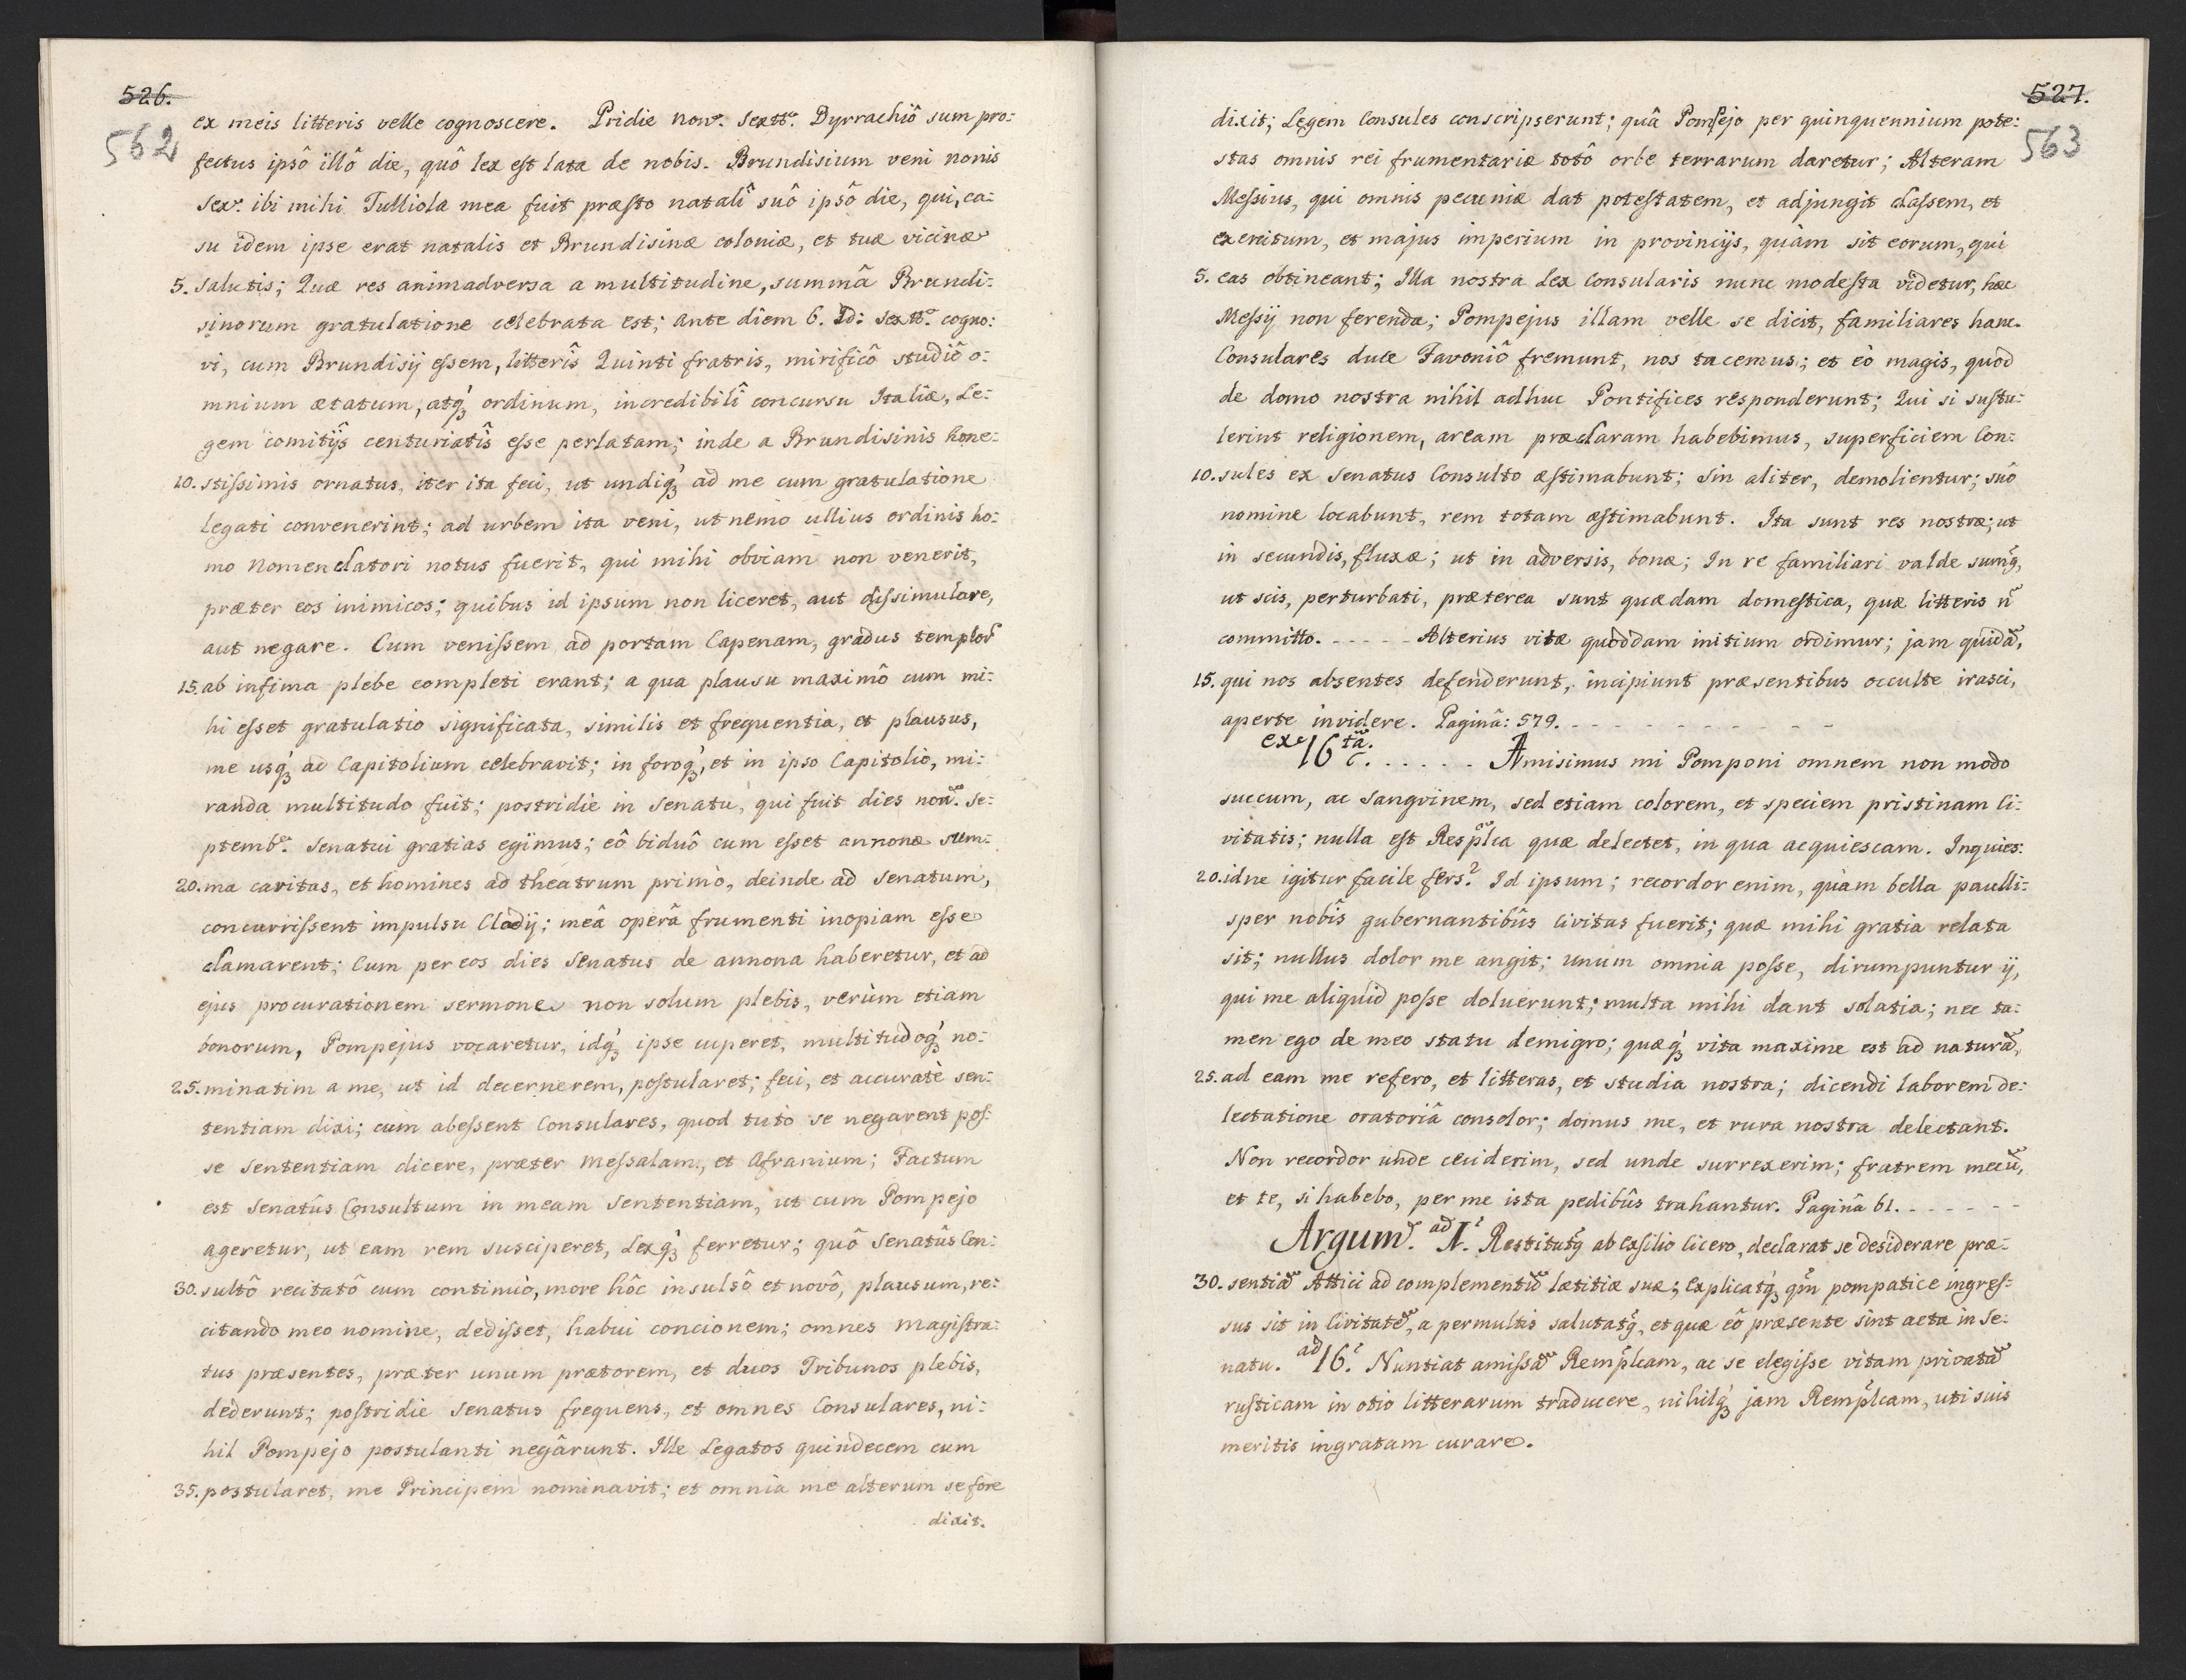 526.
562
ex meis litteris velle cognoscere. Pridie non. Sextt. Dyrrachiô sum pro:
fectus ipsô illô die, quô lex est lata de nobis. Brundisium veni nonis
Sex. ibi mihi Tulliola mea fuit præsto natalî suô ipsô die, qui, ca:
su idem ipse erat natalis et Brundisinæ coloniæ, et tuæ vicinæ
5. salutis; Quæ res animadversa a multitudine, summâ Brundi:
sinorum gratulatione celebrata est; Ante diem 6. Id: Sextt. cogno:
vi, cum Brundisij essem, litterîs Quinti fratris, mirificô studiô o:
mnium ætatum, atq́ʒ ordinum, incredibilî concursu Italiæ, Le:
gem comitijs centuriatîs esse perlatam; inde a Brundisinis hone:
10. stissimis ornatus, iter ita feci, ut undiq́ʒ ad me cum gratulatione
legati convenerint; ad urbem ita veni, ut nemo ullius ordinis ho:
mo Nomenclatori notus fuerit, qui mihi obviam non venerit,
præter eos inimicos; quibus id ipsum non liceret, aut dissimulare,
aut negare. Cum venissem ad portam Capenam, gradus templor̃
15. ab infima plebe completi erant; a qua plausu maximô cum mi:
hi esset gratulatio significata, similis et frequentia, et plausus,
me usq́ʒ ad Capitolium celebravit; in foroq́ʒ, et in ipso Capitolio, mi:
randa multitudo fuit; postridie in Senatu, qui fuit dies non. Se:
ptemb. Senatui gratias egimus; eô biduô cum esset annonæ sum:
20. ma caritas, et homines ad theatrum primò, deinde ad Senatum,
concurrissent impulsu Clodij; meâ operâ frumenti inopiam esse
clamarent; Cum per eos dies Senatus de annona haberetur, et ad
ejus procurationem sermone non solum plebis, verùm etiam
bonorum, Pompejus vocaretur, idq́ʒ ipse cuperet, multitudoq́ʒ no:
25. minatim a me, ut id decernerem, postularet; feci, et accuratè sen:
tentiam dixi; cum abessent Consulares, quod tutò se negarent pos:
se sententiam dicere, præter Messalam, et Afranium; Factum
est Senatûs Consultum in meam Sententiam, ut cum Pompejo
ageretur, ut eam rem susciperet, Lexq́ʒ ferretur; quô Senatûs Con:
30. sultô recitatô cum continuò, more hôc insulsô et novô, plausum, re:
citando meo nomine, dedisset, habui concionem; omnes magistra:
tus præsentes, præter unum prætorem, et duos Tribunos plebis,
dederunt; postridie Senatus frequens, et omnes Consulares, ni:
hil Pompejo postulanti negârunt. Ille Legatos quindecem cum
35. postularet, me Principem nominavit; et omnia me alterum se fore
dixit.
527.
563
dixit; Legem Consules conscripserunt; quâ Pompejo per quinquennium pote:
stas omnis rei frumentariæ totô orbe terrarum daretur; Alteram
Messius, qui omnis pecuniæ dat potestatem, et adjungit classem, et
exercitum, et majus imperium in provincijs, quàm sit eorum, qui
5. eas obtineant; Illa nostra Lex Consularis nunc modesta videtur, hæc
Messij non ferenda; Pompejus illam velle se dicit, familiares hanc.
Consulares duce Favoniô fremunt, nos tacemus; et eò magis, quod
de domo nostra nihil adhuc Pontifices responderunt; Qui si sustu:
lerint religionem, aream præclaram habebimus, superficiem Con:
10. sules ex Senatus Consulto æstimabunt; Sin aliter, demolientur; suô
nomine locabunt, rem totam æstimabunt. Ita sunt res nostræ; ut
in secundis, fluxæ; ut in adversis, bonæ; In re familiari valde sumq̃,
ut scis, perturbati, præterea sunt quædam domestica, quæ litteris ñ
committo. - - - - - Alterius vitæ quoddam initium ordimur; jam quidã,
15. qui nos absentes defenderunt, incipiunt præsentibus occulte irasci,
aperte invidere. Paginâ: 579. - - - - - - - - - - - -
ex 16tã c. . . . . . Amisimus mi Pomponi omnem non modo
succum, ac Sangvinem, sed etiam colorem, et speciem pristinam Ci:
vitatis; nulla est Resp̃lca quæ delectet, in qua acquiescam. Inquies:
20. idne igitur facile fers? Id ipsum; recordor enim, quàm bella paulli:
sper nobîs gubernantibûs Civitas fuerit; quæ mihi gratia relata
sit; nullus dolor me angit; unum omnia posse, dirumpuntur ij,
qui me aliquid posse doluerunt; multa mihi dant solatia; nec ta:
men ego de meo statu demigro; quæq́ʒ vita maxime est ad naturã,
25. ad eam me refero, et litteras, et studia nostra; dicendi laborem de:
lectatione oratoriâ consolor; domus me, et rura nostra delectant.
Non recordor unde ceciderim, sed unde surrexerim; fratrem mecũ,
et te, si habebo, per me ista pedibûs trahantur. Paginâ 61. - - - - - -
Argum. ad I. Restitutq̃ ab exsilio Cicero, declarat se desiderare præ:
30. sentiã Attici ad complementũ lætitiæ suæ; Explicatq́ʒ qm̃ pompatice ingres:
sus sit in Civitatẽ, a permultis salutatq̃, et quæ eô præsente sint acta in Se:
natu. ad 16. Nuntiat amissã Remp̃lcam, ac se elegisse vitam privatã
rusticam in otio litterarum traducere, nihilq́ʒ jam Remp̃lcam, uti suis
meritis ingratam curare.